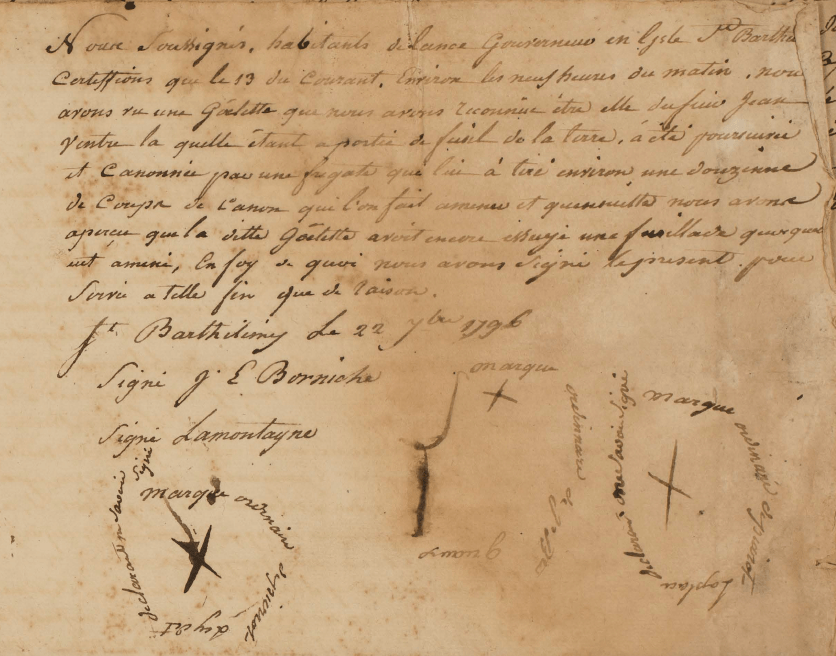 Nous Soussignés, habitants de Lance Gouverneur en Lysle St Barthe
Certiffions que le 13 du Courant, Environ les neuf heures du matin, nous
avons vu une Göelette que nous avons reconnüe être elle du Sieur Jean
Ventre la quelle étant a portée de fusil de la terre, à été poursuivie
et Canonnée par une frégate que lui à tiré environ une douzenne
de Coups de Canon qui l'on fait amener et qu'ensuitte nous avons
aperçu que la ditte Göelette avoit encore essuyé une fusillade quoique
eut amené, En foy de quoi nous avons Signé le present pour
Servir a telle fin que de raison.
St Barthélémy Le 22 7bre 1796
Signé J. E Borniche
Signé Lamontagne
marque
ordinaire de
marque
ordinaire
déclarant ne savoir signé
marque ordinaire
déclarant ne savoir signé